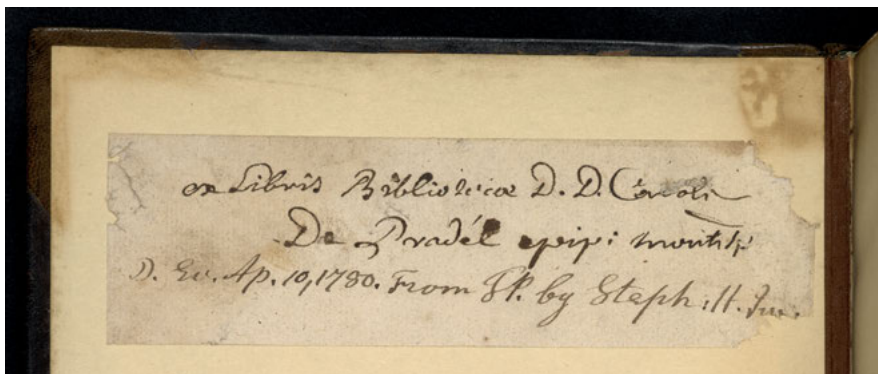 ex Libris Bibliotecæ D. D. Caroli
De Pradèl epĩpi montisp
D. Ev. Ap. 10, 1780. From by Steph: H.